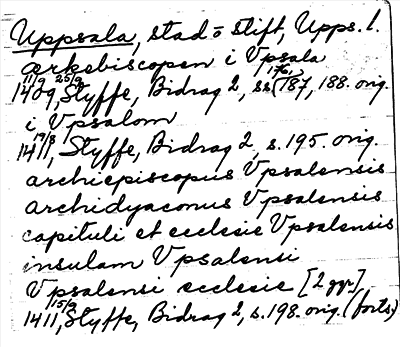 Uppsala, stad o stift, Upps. l.
ærkebiscopen i Vpsala
11/9 25/9 1409, Styffe, Bidrag 2, ss 187, 188. orig.
i Vpsalom
19/8 1411, Styffe, Bidrag 2, s. 195. orig.
archiepiscopus Vpsalensis
archidyaconus Vpsalensis
capituli et ecclesie Vpsalensis
insulam Vpsalensi
Vpsalensi ecclesie [2 ggr],
15/9 1411, Styffe, Bidrag 2, s. 198. orig. (forts.)